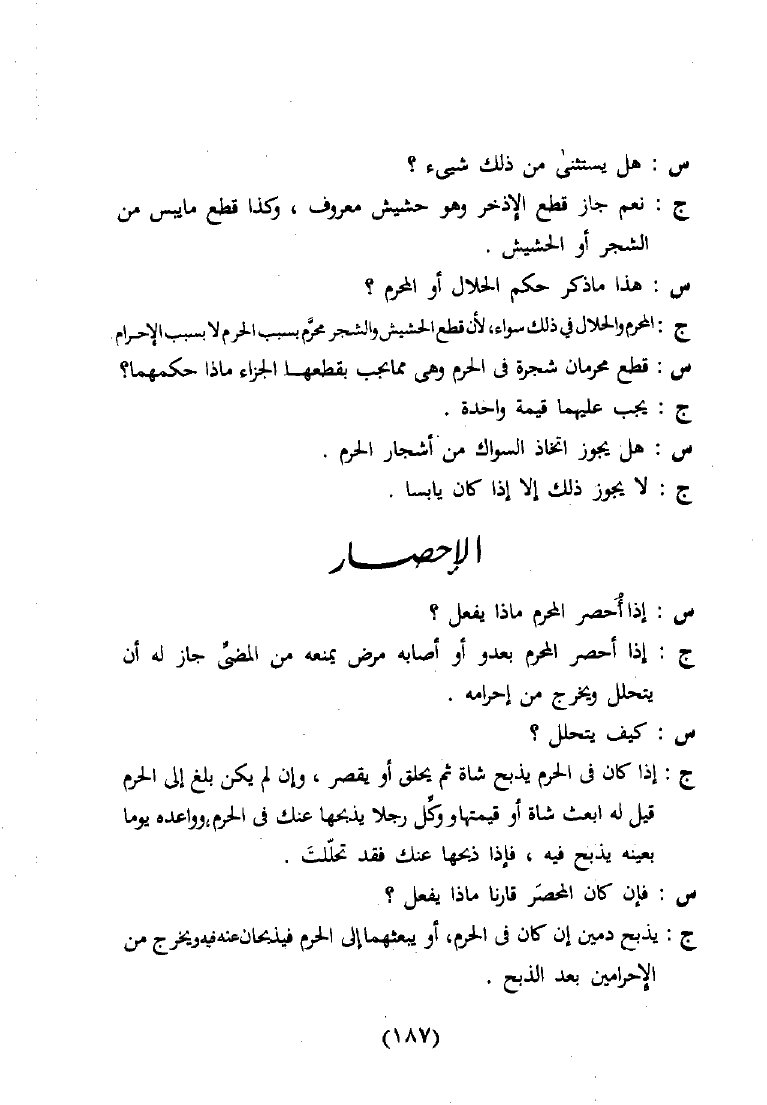 س : هل يستثنىٰ من ذلك شيىء ؟
ج : نعم جاز قطع الإذخر وهو حشيش معروف ، وكذا قطع مايبس من
الشجر أو الحشيش .
س : هذا ماذكر حكم الحلال أو المحرم ؟
ج : المحرم والحلال في ذلك سواء، لأن قطع الحشيش والشجر محرَّم بسبب الحرم لا بسبب الإحرام .
س : قطع محرمان شجرة فى الحرم وهى ممايجب بقطعهـا الجزاء ماذا حكمهما؟
ج : يجب عليهما قيمة واحدة .
س : هل يجوز اتخاذ السواك من أشجار الحرم .
ج : لا يجوز ذلك إلا إذا كان يابسا .
الإحصـــار
س : إذا أُحصر المحرم ماذا يفعل ؟
ج : إذا أحصر المحرم بعدو أو أصابه مرض يمنعه من المضىِّ جاز له أن
يتحلل ويخرج من إحرامه .
س : كيف يتحلل ؟
ج : إذا كان فى الحرم يذبح شاة ثم يحلق أو يقصر ، وإن لم يكن بلغ إلى الحرم
قيل له ابعث شاة أو قيمتها ووكِّل رجلا يذبحها عنك فى الحرم، وواعده يوما
بعينه يذبح فيه ، فإذا ذبحها عنك فقد تحلّلتَ .
س : فإن كان المحصَر قارنا ماذا يفعل ؟
ج : يذبح دمين إن كان فى الحرم، أو يبعثهما إلى الحرم فيذبحان عنه فيه ويخرج من
الإحرامين بعد الذبح .
(١٨٧)